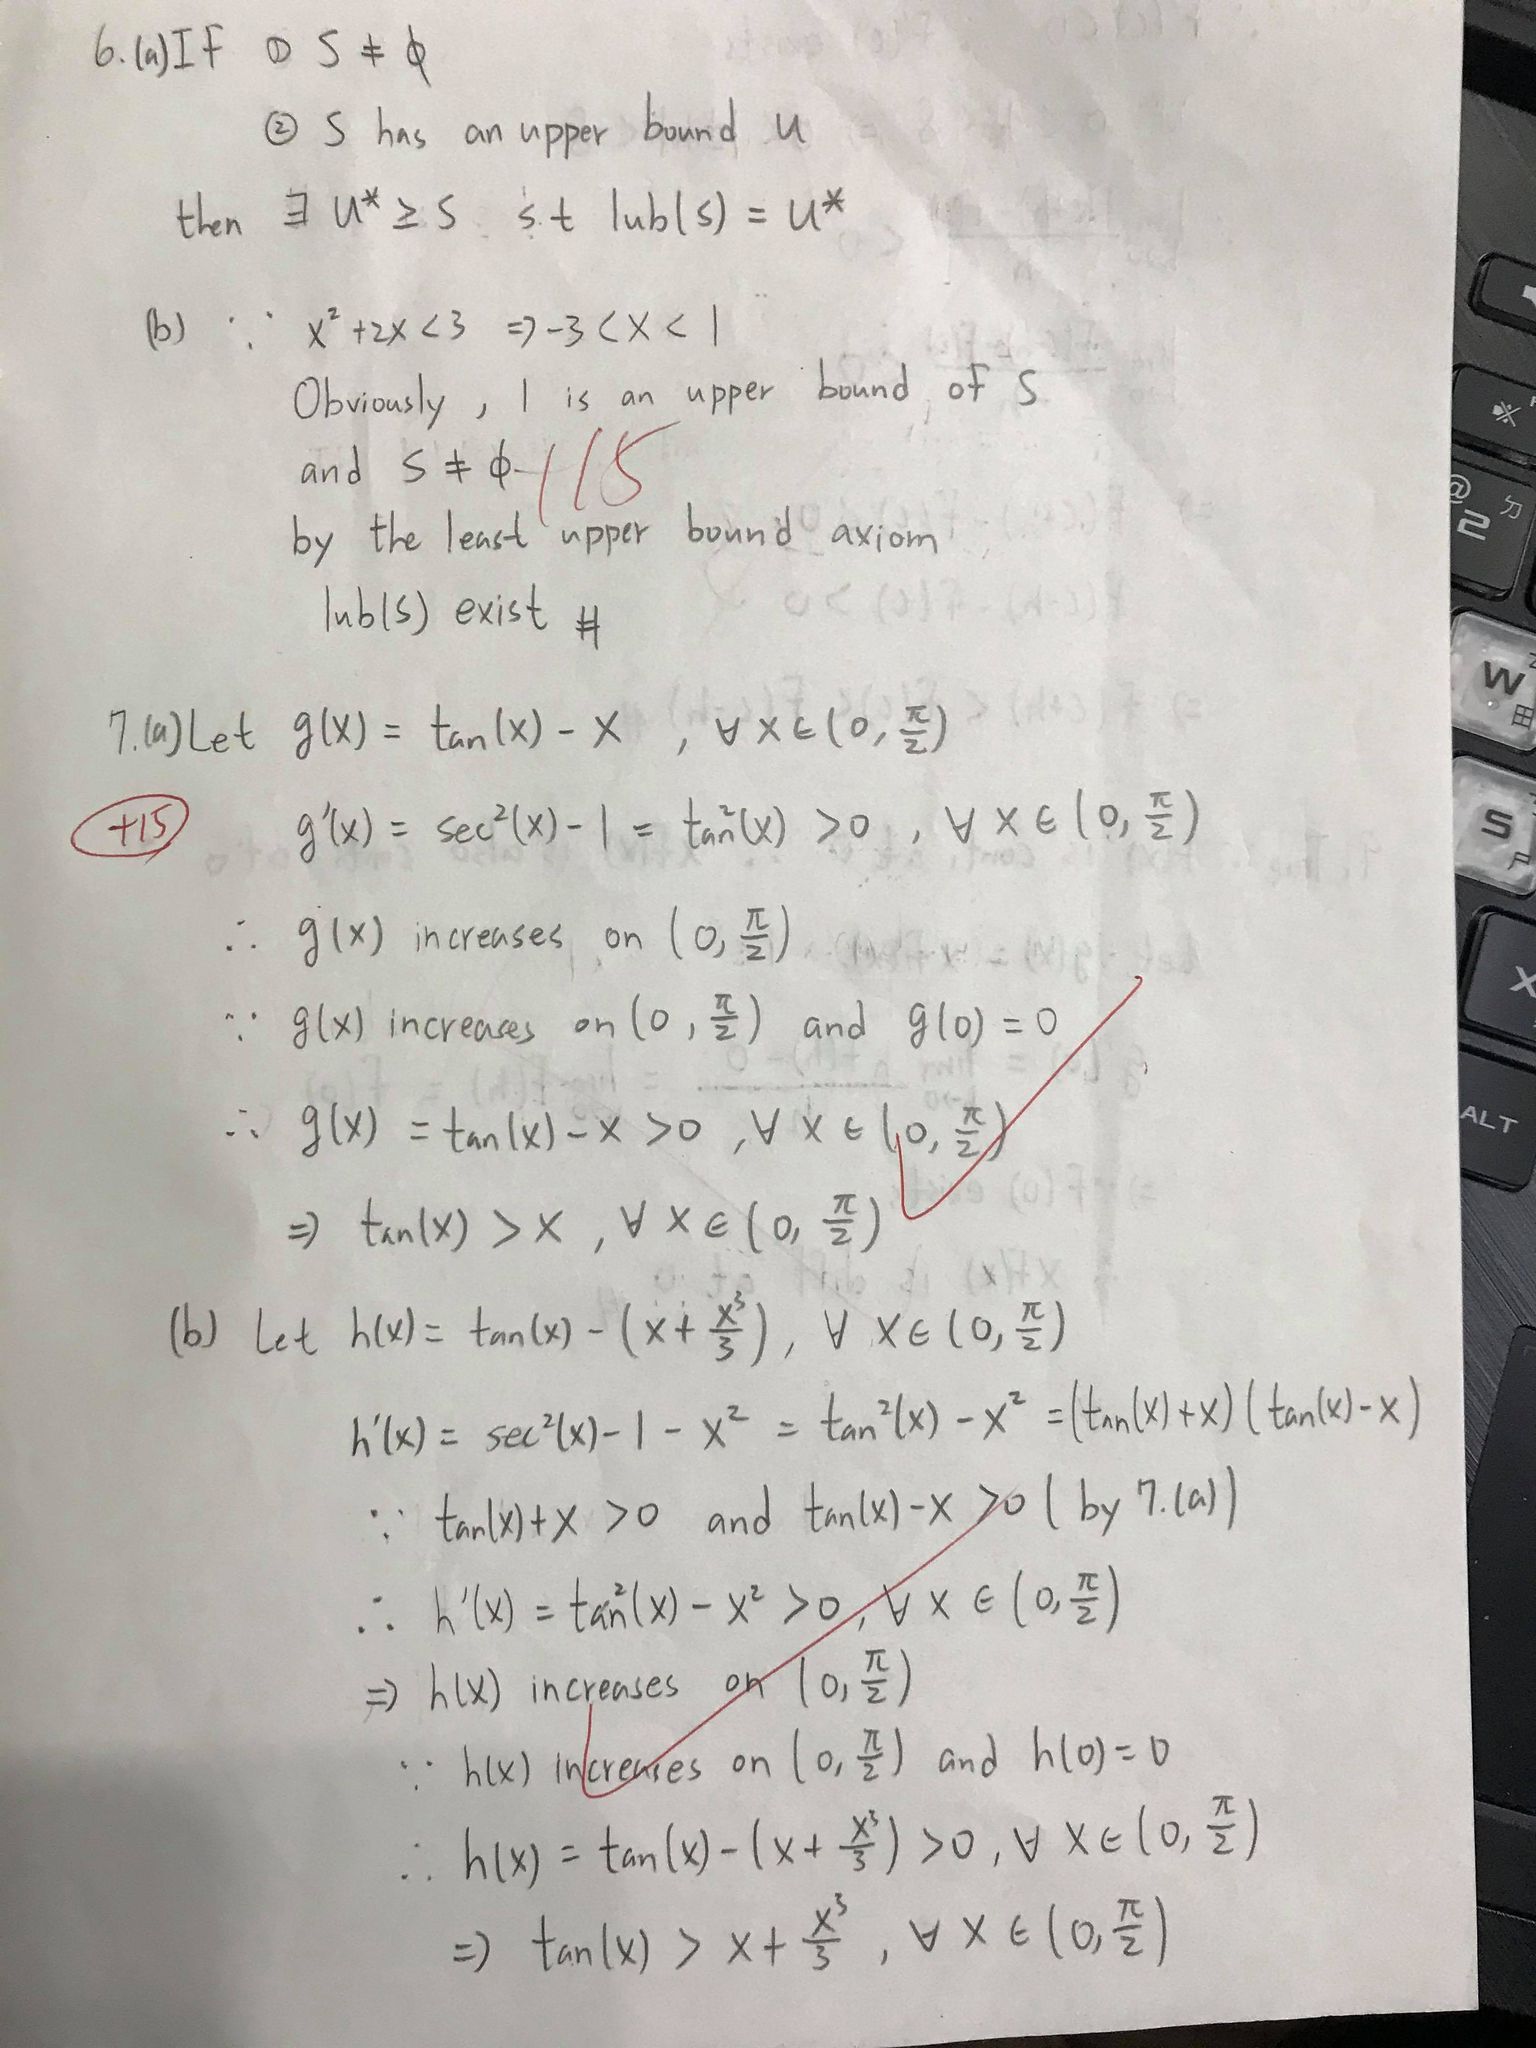 6.(a) If ① S ≠ ϕ
② S has an upper bound u
then ∃ u* ≥ S s.t lub(S) = u*
(b) ∵ x² + 2x < 3 ⇒ -3 < x < 1
Obviously, 1 is an upper bound of S
and S ≠ ϕ
by the least upper bound axiom
lub(S) exist #
7.(a) Let g(x) = tan(x) - x , ∀ x ∈ (0, π/2)
+15
g'(x) = sec²(x) - 1 = tan²(x) > 0 , ∀ x ∈ (0, π/2)
∴ g(x) increases on (0, π/2)
∵ g(x) increases on (0, π/2) and g(0) = 0
∴ g(x) = tan(x) - x > 0 , ∀ x ∈ (0, π/2)
⇒ tan(x) > x , ∀ x ∈ (0, π/2)
(b) Let h(x) = tan(x) - (x + x³/3), ∀ x ∈ (0, π/2)
h'(x) = sec²(x) - 1 - x² = tan²(x) - x² = (tan(x) + x) (tan(x) - x)
∵ tan(x) + x > 0 and tan(x) - x > 0 (by 7.(a))
∴ h'(x) = tan²(x) - x² > 0, ∀ x ∈ (0, π/2)
⇒ h(x) increases on (0, π/2)
∵ h(x) increases on (0, π/2) and h(0) = 0
∴ h(x) = tan(x) - (x + x³/3) > 0, ∀ x ∈ (0, π/2)
⇒ tan(x) > x + x³/3 , ∀ x ∈ (0, π/2)
@
2 ㄉ
W
田
S
尸
X
ALT